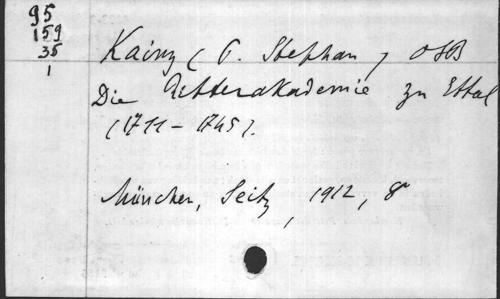 95
159
35
1
Kainz (P. Stephan) OSB
Die Ritterakademie zu Ettal
(1711-1745).
München, Seitz, 1912, 8°